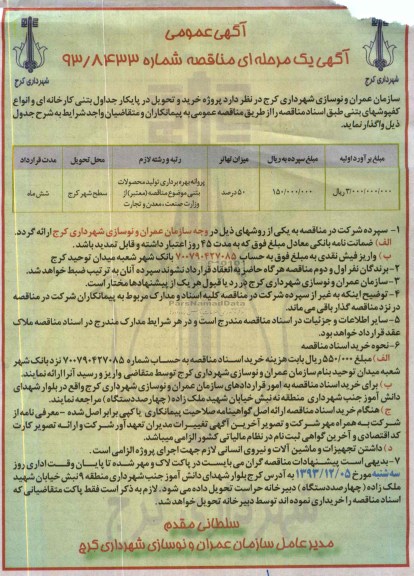 آگهی عمومی
آگهی یک مرحله ای مناقصه شماره ۹۳/۸۴۳۳
شهرداری کرج
شهرداری کرج
سازمان عمران و نوسازی شهرداری کرج در نظر دارد پروژه خرید و تحویل در پایکار جداول بتنی کارخانه ای و انواع
کفپوشهای بتنی طبق اسناد مناقصه را از طریق مناقصه عمومی به پیمانکاران و متقاضیان واجد شرایط به شرح جدول
ذیل واگذار نماید.
مبلغ برآورد اولیه | مبلغ سپرده به ریال | میزان تهاتر | رتبه و رشته لازم | محل تحویل | مدت قرارداد
۳/۰۰۰/۰۰۰/۰۰۰ ریال | ۱۵۰/۰۰۰/۰۰۰ | ۵۰ درصد | پروانه بهره برداری تولید محصولات بتنی موضوع مناقصه (معتبر) از وزارت صنعت، معدن و تجارت | سطح شهر کرج | شش ماه
۱- سپرده شرکت در مناقصه به یکی از روشهای ذیل در وجه سازمان عمران و نوسازی شهرداری کرج ارائه گردد.
الف) ضمانت نامه بانکی معادل مبلغ فوق که به مدت ۴۵ روز اعتبار داشته و قابل تمدید باشد.
ب) واریز فیش نقدی به مبلغ فوق به حساب ۷۰۰۷۹۰۴۲۷۰۸۵ بانک شهر شعبه میدان توحید کرج
۲- برندگان نفر اول و دوم مناقصه هر گاه حاضر به انعقاد قرارداد نشوند سپرده آنان به ترتیب ضبط خواهد شد.
۳- سازمان عمران و نوسازی شهرداری کرج در رد یا قبول هر یک از پیشنهادها مختار است.
۴- توضیح اینکه به غیر از سپرده شرکت در مناقصه کلیه اسناد و مدارک مربوط به پیمانکاران شرکت در مناقصه
در نزد مناقصه گذار باقی می ماند.
۵- سایر اطلاعات و جزئیات در اسناد مناقصه مندرج است و در هر شرایط مدارک مندرج در اسناد مناقصه ملاک
عقد قرارداد خواهد بود.
۶- نحوه خرید اسناد مناقصه
الف) مبلغ ۵۵۰/۰۰۰ ریال بابت هزینه خرید اسناد مناقصه به حساب شماره ۷۰۰۷۹۰۴۲۷۰۸۵ نزد بانک شهر
شعبه میدان توحید بنام سازمان عمران و نوسازی شهرداری کرج توسط متقاضی واریز و رسید آنرا ارائه نمایند.
ب) برای خرید اسناد مناقصه به امور قراردادهای سازمان عمران و نوسازی شهرداری کرج واقع در بلوار شهدای
دانش آموز جنب شهرداری منطقه نه نبش خیابان شهید ملک زاده (چهارصد دستگاه) مراجعه نمایند.
ج) هنگام خرید اسناد مناقصه ارائه اصل گواهینامه صلاحیت پیمانکاری یا کپی برابر اصل شده - معرفی نامه از
شرکت به همراه مهر شرکت و تصویر آخرین آگهی تغییرات مدیران تعهدآور شرکت و ارائه تصویر کارت
کد اقتصادی و آخرین گواهی ثبت نام در نظام مالیاتی کشور الزامی میباشد.
د) داشتن تجهیزات و ماشین آلات و نیروی انسانی لازم جهت اجرای پروژه الزامی است.
۷- بدیهی است پیشنهادات مناقصه گران می بایست در پاکت لاک و مهر شده تا پایان وقت اداری روز
سه شنبه مورخ ۱۳۹۳/۱۲/۰۵ به آدرس کرج بلوار شهدای دانش آموز جنب شهرداری منطقه ۹ نبش خیابان شهید
ملک زاده (چهارصد دستگاه) دبیرخانه حراست تحویل داده می شود. لازم به ذکر است فقط پاکت متقاضیانی که
اسناد مناقصه را خریداری نموده اند توسط دبیرخانه تحویل خواهد شد.
سلطانی مقدم
مدیرعامل سازمان عمران و نوسازی شهرداری کرج